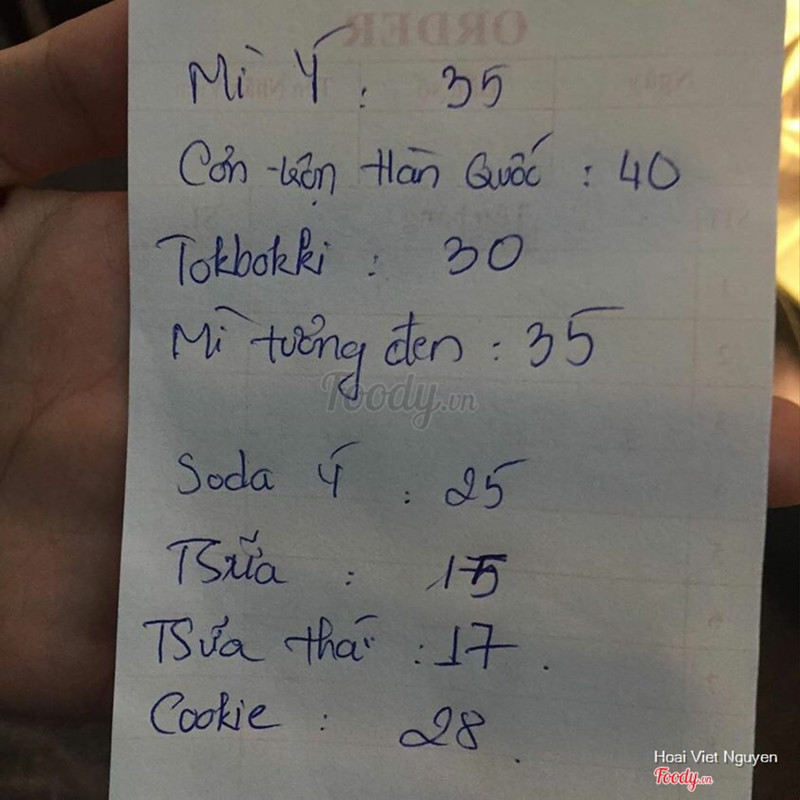 ORDER
Mì Ý : 35
Cơn trộn Hàn Quốc : 40
Tokbokki : 30
Mì tương đen : 35
Foody.vn
Soda Ý : 25
TSữa : 15
TSữa thái : 17 .
Cookie : 28 .
Hoai Viet Nguyen
Foody.vn